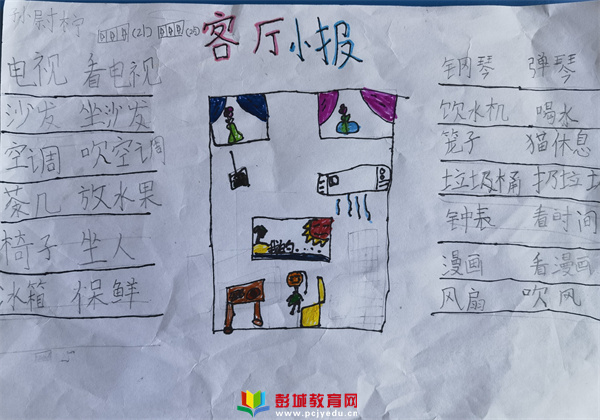 孙尉柠
客厅小报
电视 看电视
沙发 坐沙发
空调 吹空调
茶几 放水果
椅子 坐人
冰箱 保鲜
钢琴 弹琴
饮水机 喝水
篮子 猫休息
垃圾桶 扔垃圾
钟表 看时间
漫画 看漫画
风扇 吹风
彭城教育网
www.pcjyedu.cn